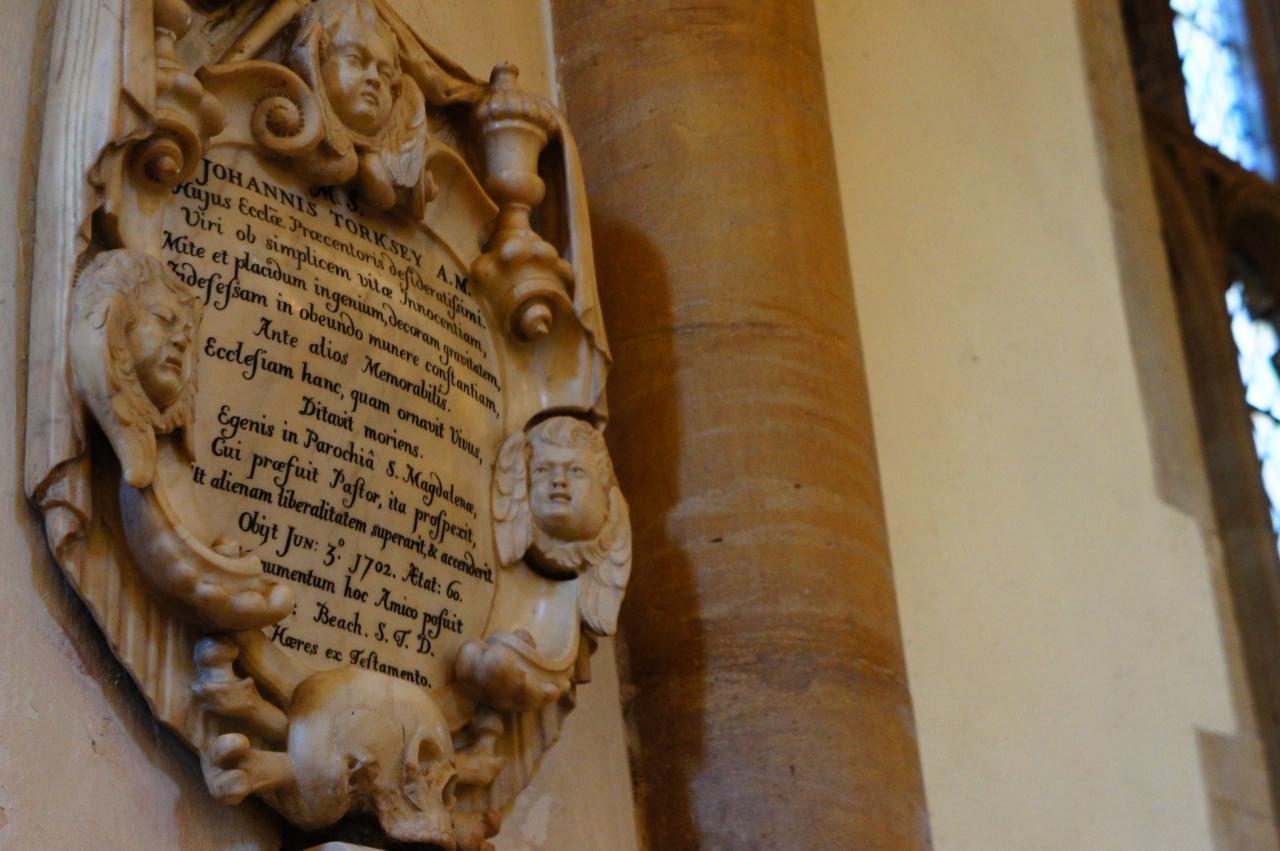 M. S.
JOHANNIS TORKSEY A.M.
Hujus Ecclæ. Præcentoris deſideratiſsimi.
Viri ob simplicem vitæ Innocentiam,
Mite et placidum ingenium, decoram gravitatem,
Indefeſsam in obeundo munere conſtantiam,
Ante alios Memorabilis.
Eccleſiam hanc, quam ornavit Vivus,
Ditavit moriens.
Egenis in Parochiâ S. Magdalenæ,
Cui præfuit Paſtor, ita proſpexit,
Ut alienam liberalitatem superarit, & accenderit.
Obijt JUN: 3º. 1702. Ætat: 60.
numentum hoc Amico poſuit
: Beach. S. T. D.
Hæres ex Teſtamento.